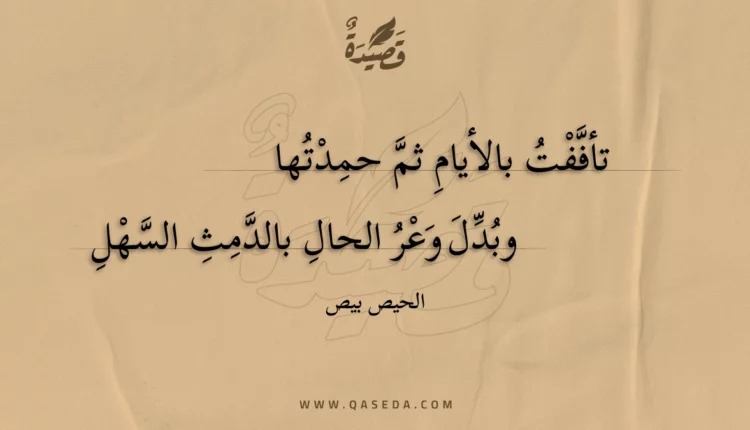 قَصِيدَةٌ
تأفَّفْتُ بالأيامِ ثمَّ حمِدْتُها
وبُدِّلَ وَعْرُ الحالِ بالدَّمِثِ السَّهْلِ
الحيص بيص
WWW.QASEDA.COM